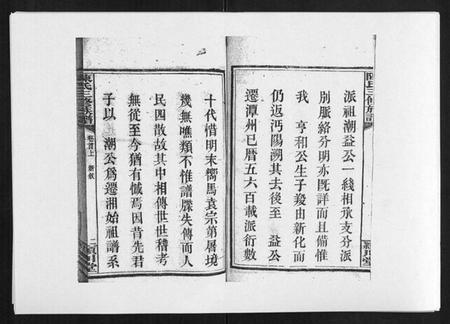 派祖潮益公一綫相承支分派
別脈絡分明亦既詳而且備惟
我　亨和公生子羧由新化而
仍返沔陽溯其去後至　益公
遷潭州已曆五六百載派衍數
十代惜明末獨馬袁宗第屠境
幾無噍類不惟譜牒失傳而人
民四散故其中相傳世世稽考
無從至今猶有憾焉因昔先君
子以　潮公爲遷湘始祖譜系
陳氏三修族譜
卷首上
潁川堂